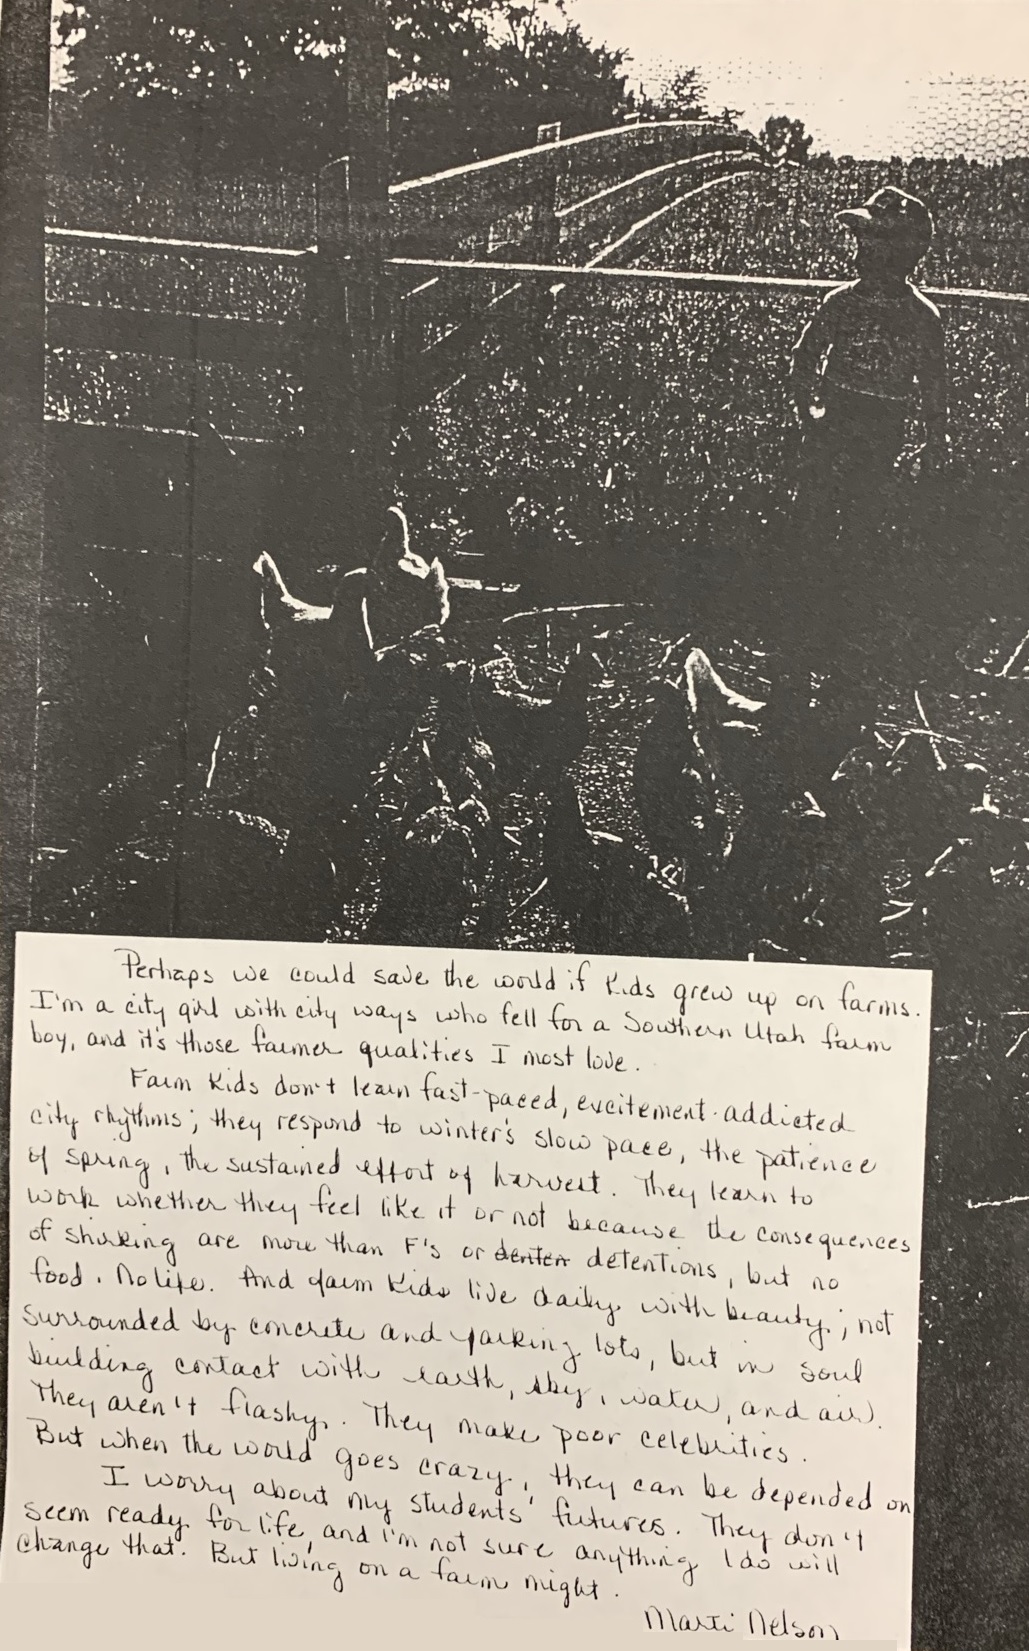 Perhaps we could save the world if kids grew up on farms.
I'm a city girl with city ways who fell for a Southern Utah farm
boy, and it's those farmer qualities I most love.
Farm kids don't learn fast-paced, excitement-addicted
city rhythms; they respond to winter's slow pace, the patience
of spring, the sustained effort of harvest. They learn to
work whether they feel like it or not because the consequences
of shirking are more than F's or detentions, but no
food. No life. And farm kids live daily with beauty; not
surrounded by concrete and parking lots, but in soul
building contact with earth, sky, water, and air.
They aren't flashy. They make poor celebrities.
But when the world goes crazy, they can be depended on
I worry about my students' futures. They don't
seem ready for life, and I'm not sure anything I do will
change that. But living on a farm might.
Marti Nelson